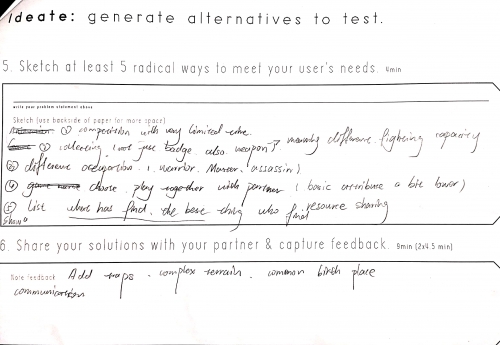 Ideate: generate alternatives to test.
5. Sketch at least 5 radical ways to meet your user's needs. 4min
write your problem statement above
Sketch (use backside of paper for more space)
① competition with very limited
② not just badge. also weapon → meaning difference fighting capacity
③ difference occupation ( warrior. Monster. assassin)
④ choose play together with partner ( basic attribute a bit lower)
⑤ List who has find the best thing who find resource sharing
Show
6. Share your solutions with your partner & capture feedback. 9min (2x4.5 min)
Note feedback Add traps . complex terrain . common birth place
communication